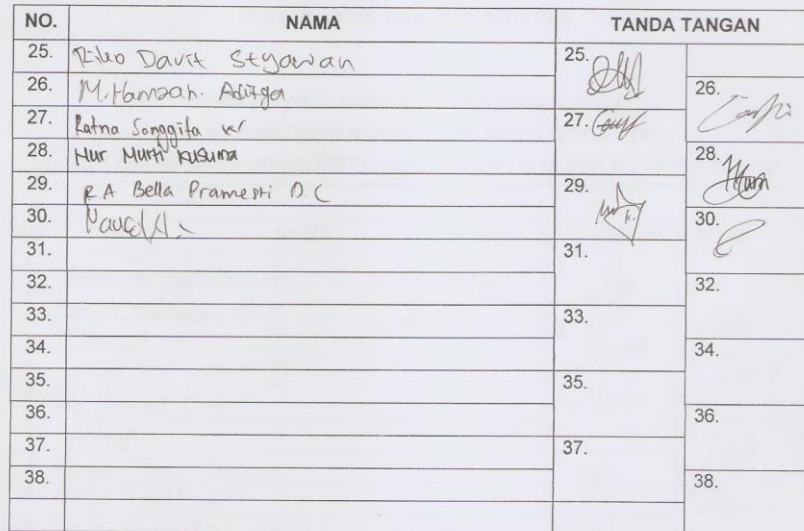 NO. NAMA TANDA TANGAN
25. Riko Davit Styawan 25.
26. M. Hamzah. Aditya 26.
27. Ratna Songgita 27.
28. Nur Murti Kusuma 28.
29. R.A Bella Pramesti D.C 29.
30. 30.
31. 31.
32. 32.
33. 33.
34. 34.
35. 35.
36. 36.
37. 37.
38. 38.